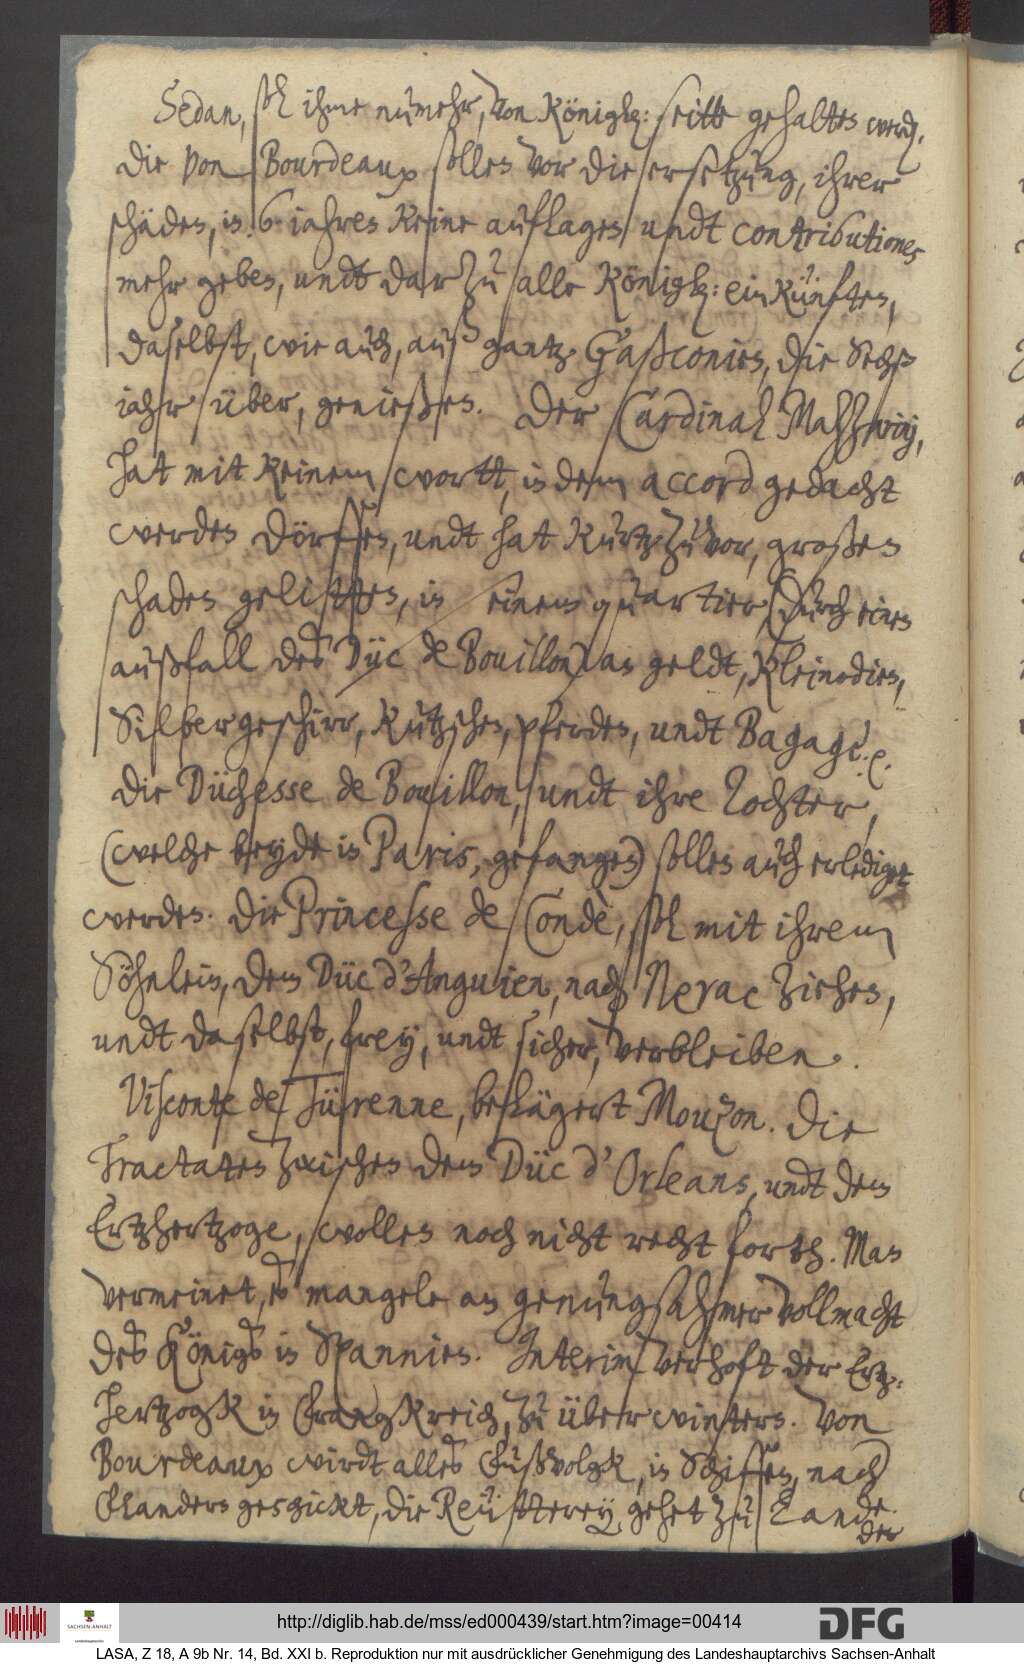 Sedan, sol ihme nunmehr, von Königl: seitte gehalten werd.
die von Bourdeaux sollen vor die ersetzung, ihrer
schäden, in 6 iahren keine aufflagen undt contributiones
mehr geben, undt darzu alle Königl: einkünften,
daselbst, wie auch, auß gantz Gaßconien, die Sechß
iahr über, genießen. Der Cardinal Mazzariny,
hat mit keinem wortt, in dem accord gedacht
werden dörffen, undt hat kurtz zuvor, großen
schaden gelitten, in einem quartier, (durch einen
außfall des Düc de Bouillon) an geldt, kleinodien,
Silbergeschirr, kutzschen, pferden, undt Bagage.
die Düchesse de Bouillon, undt ihre Tochter,
(welche beyde in Paris, gefangen) sollen auch erlediget
werden. Die Princesse de Condè, sol mit ihrem
Söhnlein, dem Düc d'Anguien, nach Nerac ziehen,
undt daselbst, frey, undt sicher, verbleiben.
Visconte de Türenne, belägert Mouzon. Die
Tractaten zwischen dem Düc d'Orleans, undt dem
Ertzhertzoge, wollen noch nicht recht forth. Man
vermeinet, es mangele an genungsahmer vollmacht
des Königs in Spannien. Interim verhoft der Ertz-
hertzogk in Frangkreich, zu überwintern. Von
Bourdeaux wirdt alles Fußvolgk, in Schiffen, nach
Flandern geschickt, die Reütterey, gehet zu Lande.
der
http://diglib.hab.de/mss/ed000439/start.htm?image=00414
SACHSEN-ANHALT
DFG
LASA, Z 18, A 9b Nr. 14, Bd. XXI b. Reproduktion nur mit ausdrücklicher Genehmigung des Landeshauptarchivs Sachsen-Anhalt